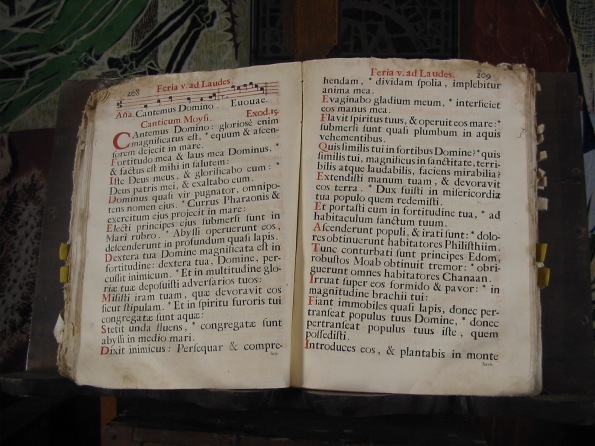 208
Feria v. ad Laudes.
Aña. Cantemus Domino. Euouae.
Canticum Moysi. Exod. 15.
CAntemus Domino: gloriosè enim
magnificatus est, * equum & ascen-
sorem dejecit in mare.
Fortitudo mea & laus mea Dominus, *
& factus est mihi in salutem:
Iste Deus meus, & glorificabo eum: *
Deus patris mei, & exaltabo eum.
Dominus quasi vir pugnator, omnipo-
tens nomen ejus. * Currus Pharaonis &
exercitum ejus projecit in mare:
Electi principes ejus submersi sunt in
Mari rubro. * Abyssi operuerunt eos,
descenderunt in profundum quasi lapis.
Dextera tua Domine magnificata est in
fortitudine: dextera tua, Domine, per-
cussit inimicum. * Et in multitudine glo-
riæ tuæ deposuisti adversarios tuos:
Misisti iram tuam, quæ devoravit eos
sicut stipulam. * Et in spiritu furoris tui
congregatæ sunt aquæ:
Stetit unda fluens, * congregatæ sunt
abyssi in medio mari.
Dixit inimicus: Persequar & compre-
hen-
Feria v. ad Laudes.
209
hendam, * dividam spolia, implebitur
anima mea.
Evaginabo gladium meum, * interficiet
eos manus mea.
Flavit spiritus tuus, & operuit eos mare: *
submersi sunt quasi plumbum in aquis
vehementibus.
Quis similis tui in fortibus Domine? * quis
similis tui, magnificus in sanctitate, terri-
bilis atque laudabilis, faciens mirabilia?
Extendisti manum tuam, & devoravit
eos terra. * Dux fuisti in misericordia
tua populo quem redemisti.
Et portasti eum in fortitudine tua, * ad
habitaculum sanctum tuum.
Ascenderunt populi, & irati sunt: * dolo-
res obtinuerunt habitatores Philisthiim.
Tunc conturbati sunt principes Edom,
robustos Moab obtinuit tremor: * obri-
guerunt omnes habitatores Chanaan.
Irruat super eos formido & pavor: * in
magnitudine brachii tui:
Fiant immobiles quasi lapis, donec per-
transeat populus tuus Domine, * donec
pertranseat populus tuus iste, quem
possedisti.
Introduces eos, & plantabis in monte